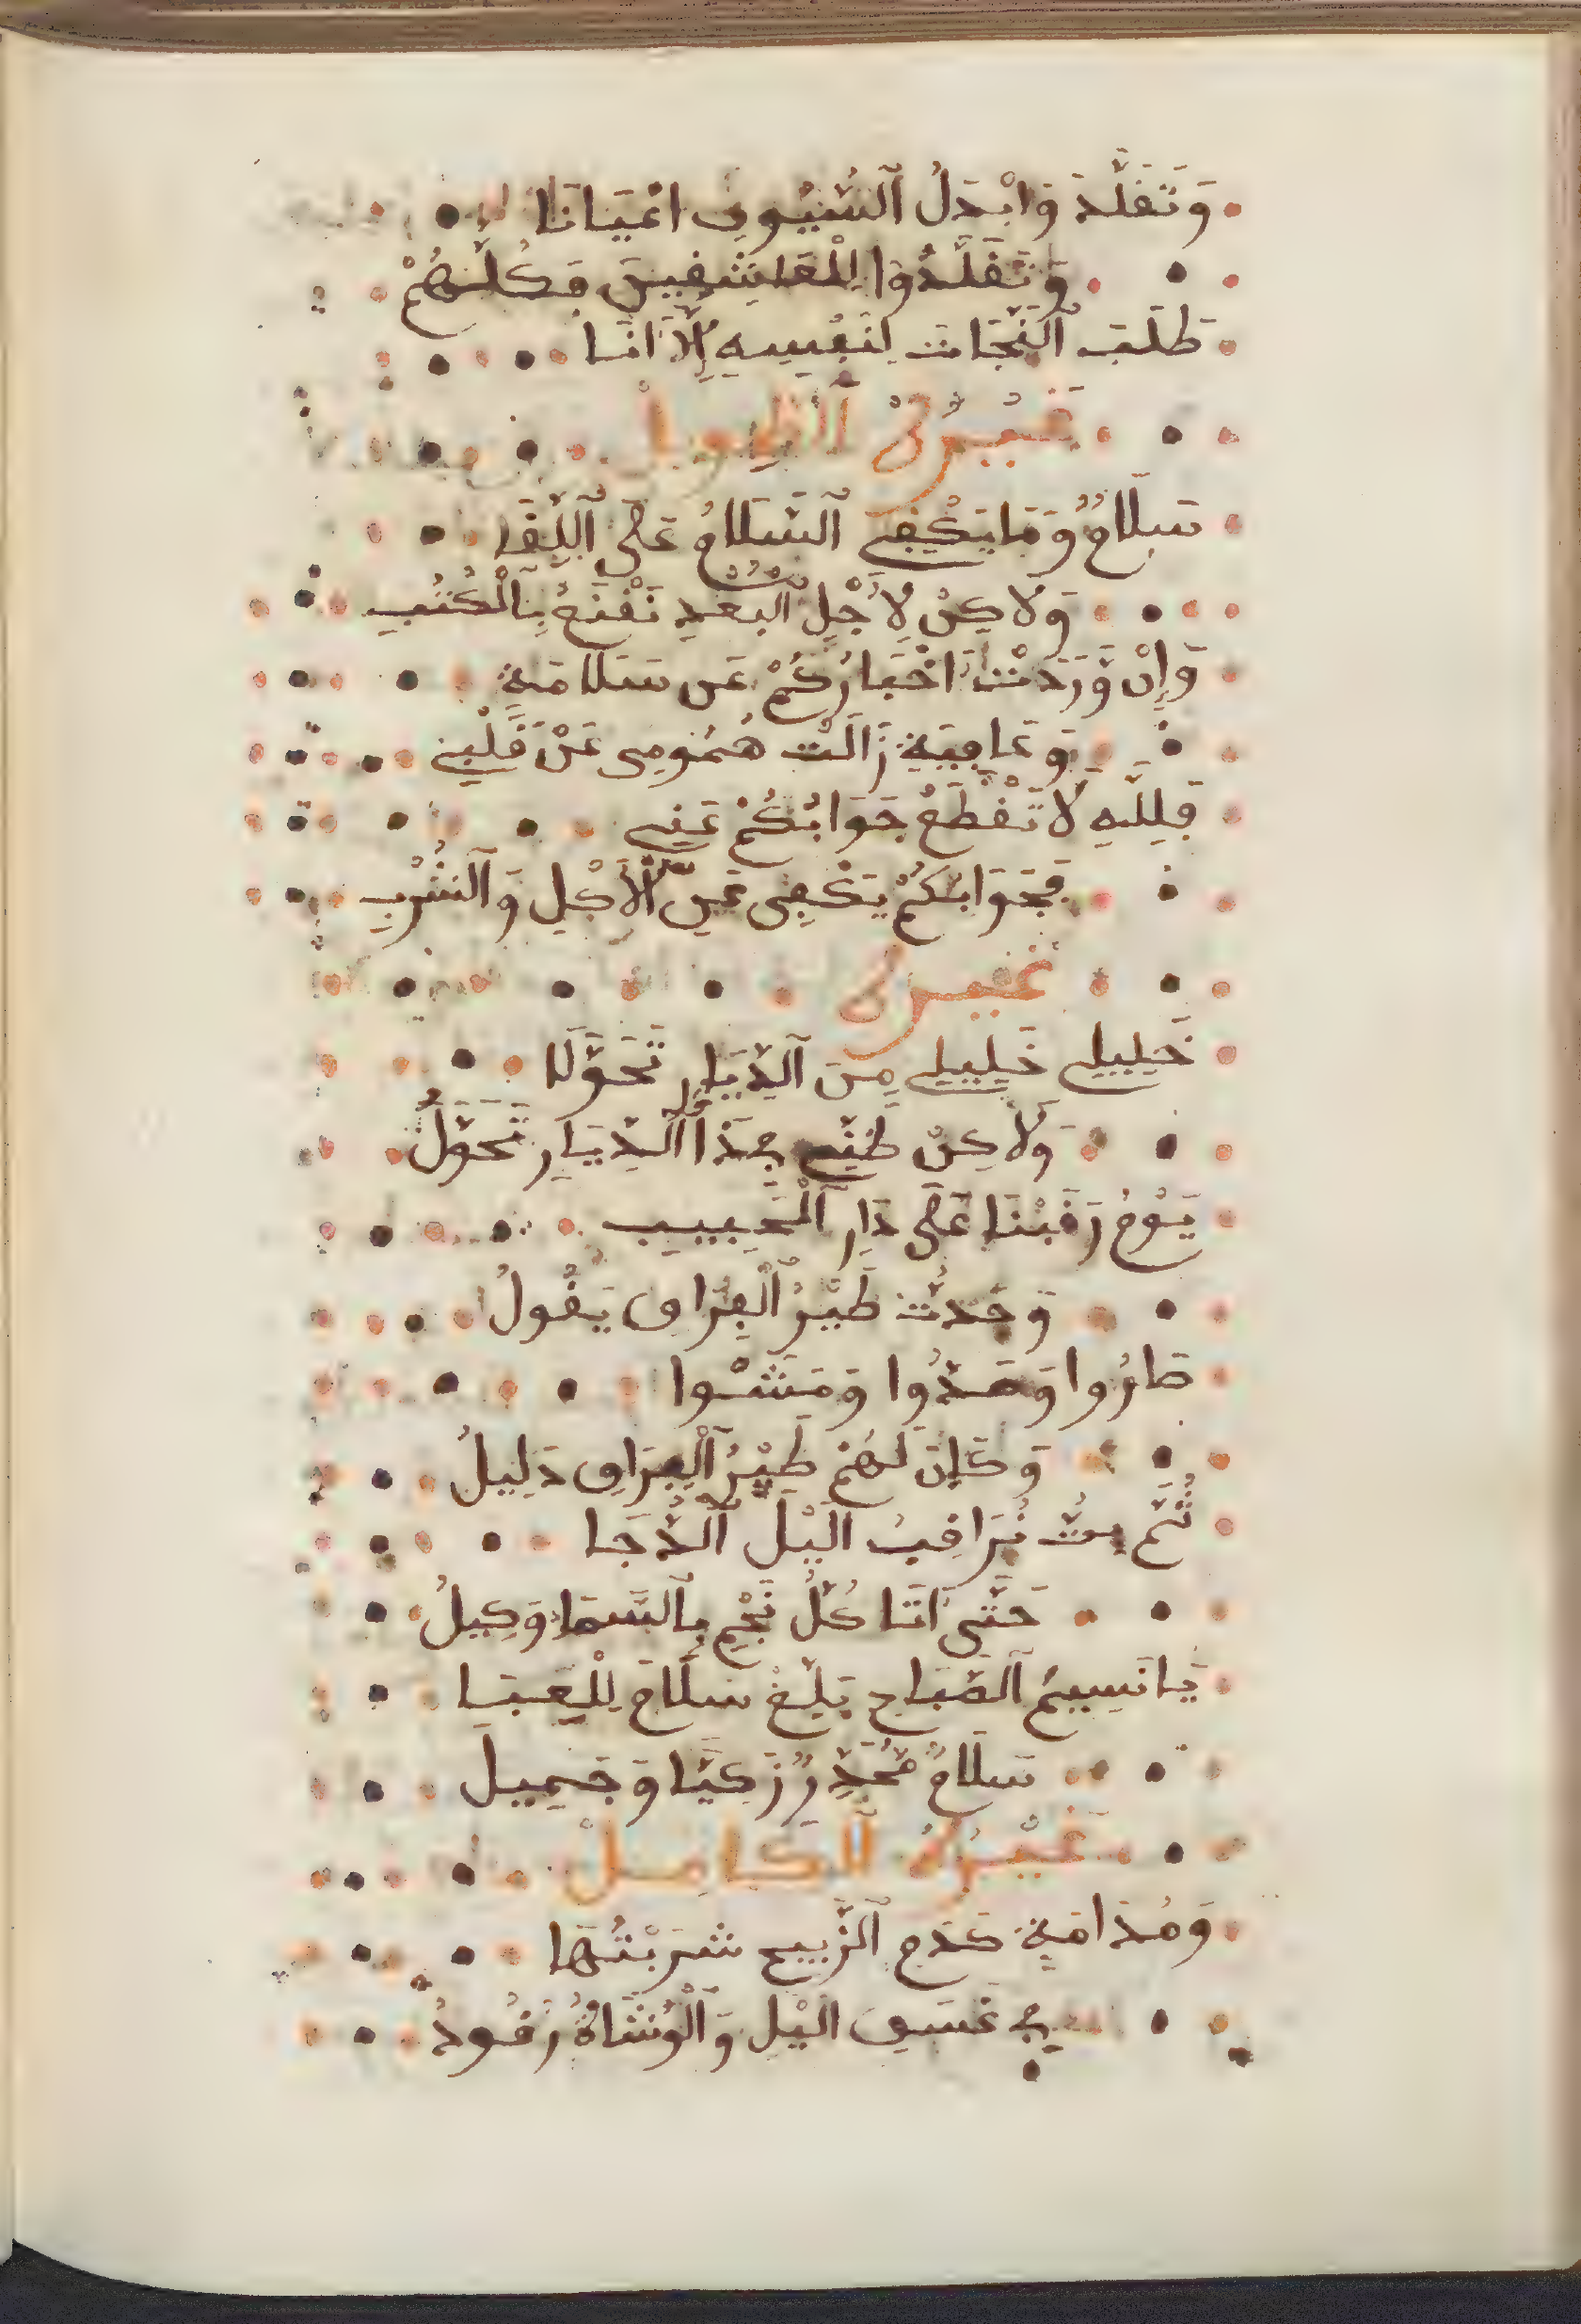 وَتَقَلَّدَ وَابْدَلُ ٱلسُّيُوفِ اعْيَانَا
وَتَقَلَّدُوا لِلْعَاشِقِينَ فَكُلُّهُمْ
طَلَبَ ٱلنَّجَاتَ لِنَفْسِهِ إِلَّا أَنَا
غَيْرُهُ ٱلطويل
سَلَامٌ وَمَا يَكْفِي ٱلسَّلَامُ عَلَى ٱللِّقَا
وَلَاكِنْ لِأَجْلِ ٱلْبُعْدِ نَقْنَعُ بِٱلْكُتُبِ
وَإِنْ وَرَدَتْ أَخْبَارُكُمْ عَن سَلَامَةٍ
وَعَافِيَةٍ زَالَتْ هُمُومِى عَنْ قَلْبِي
فَلِلَّهِ لَا تَقْطَعُ جَوَابُكُمْ عَنِّي
فَجَوَابُكُمْ يَكْفِى عَنِ ٱلْأَكْلِ وَٱلشُّرْبِ
غيره
خَلِيلِي خَلِيلِي مِنَ ٱلدِّيَارِ تَحَوَّلَا
وَلَاكِنْ ظَنِّي بِهَذَا ٱلدِّيَارِ تَحَوَّلُ
يَوْمُ رَقَبْنَا عَلَى دَارِ ٱلْحَبِيبِ
وَجَدتُّ طَيْرُ ٱلْفِرَاقِ يَقُولُ
طَارُوا وَهَدُّوا وَمَشَوْا
وَكَانَ لَهُمْ طَيْرُ ٱلْفِرَاقِ دَلِيلُ
ثُمَّ بِتُّ نُرَاقِبُ ٱلَيْلَ ٱلدُّجَا
حَتَّى أَنَا كُلُّ نَجْمٍ بِٱلسَّمَا وَكِيلُ
يَا نَسِيمُ ٱلصَّبَاحِ بَلِّغْ سَلَامَ
سَلَامٌ زَكِيًّا وَجَمِيلَ
غَيْرُهُ ٱلْكامِلْ
وَمُدَامَةٍ كَدَمِ ٱلذَّبِيحِ شَرَبْتُهَا
فِي غَسَقِ ٱلَيْلِ وَٱلْوُشَاةُ رُقُودُ